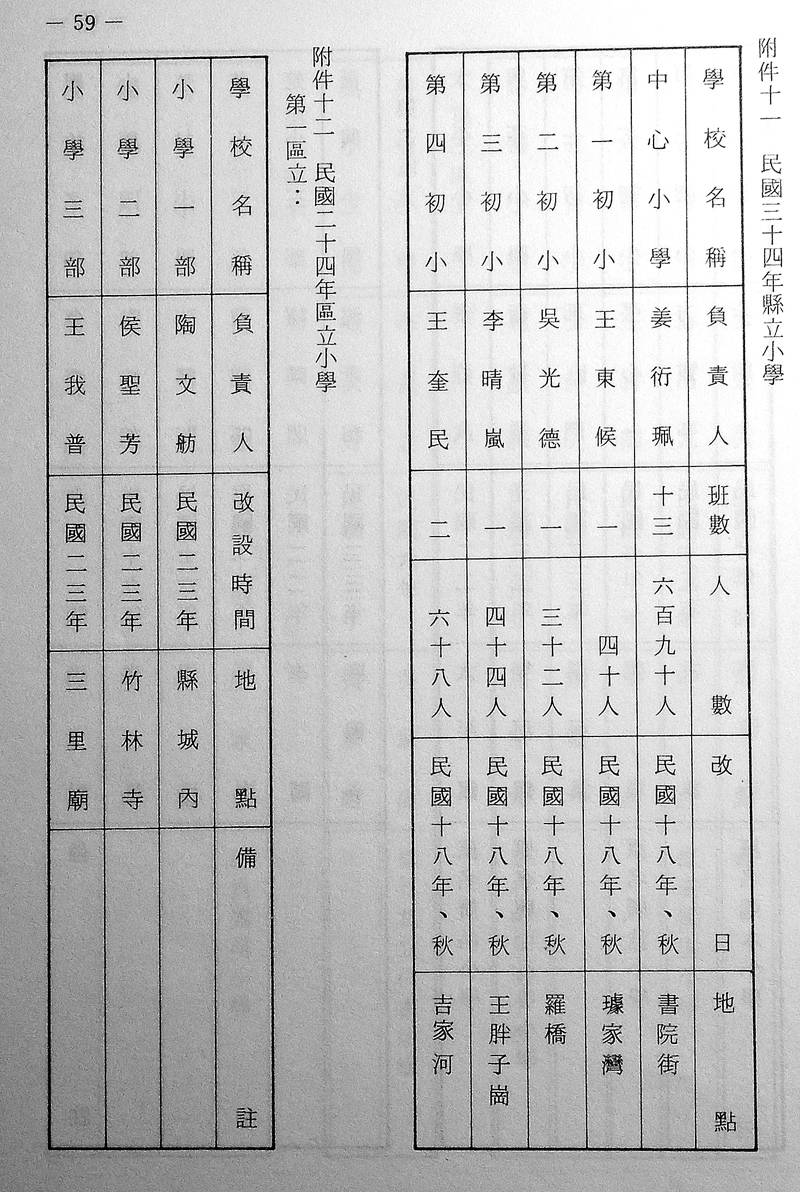 — 59 —
附件十一　民國三十四年縣立小學
學校名稱　負責人　班數　人數　改日　地點
中心小學　姜衍珮　十三　六百九十人　民國十八年、秋　書院街
第一初小　王東候　一　四十人　民國十八年、秋　璩家灣
第二初小　吳光德　一　三十二人　民國十八年、秋　羅橋
第三初小　李晴嵐　一　四十四人　民國十八年、秋　王胖子崗
第四初小　王奎民　二　六十八人　民國十八年、秋　吉家河
附件十二　民國二十四年區立小學
第一區立：
學校名稱　負責人　改設時間　地點　備註
小學一部　陶文舫　民國二三年　縣城內
小學二部　侯聖芳　民國二三年　竹林寺
小學三部　王我普　民國二三年　三里廟